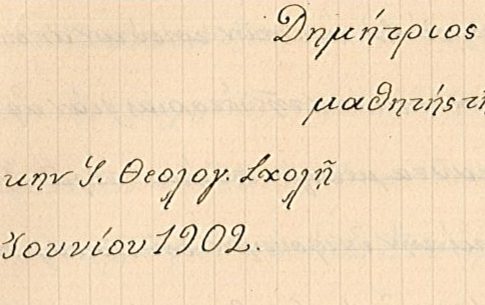 Δημήτριος
μαθητής τῆ
κην Ἱ. Θεολογ. Σχολῇ
Ἰουνίου 1902.